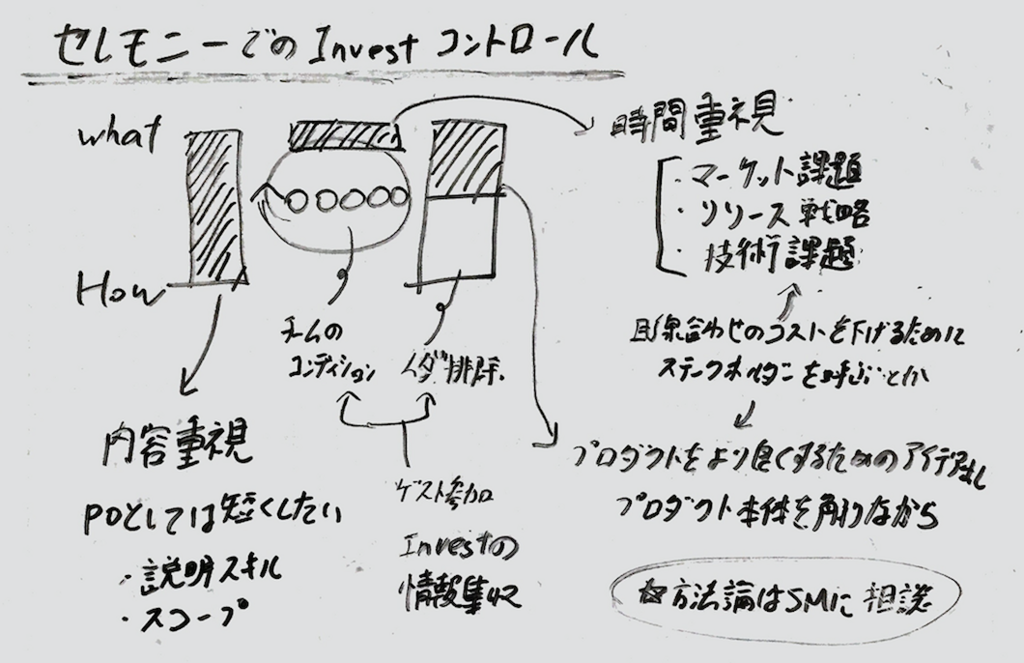 セレモニーでのInvestコントロール
what
How
時間重視
・マーケット課題
・リリース戦略
・技術課題
目線合わせのコストを下げるために
ステークホルダーを呼ぶとか
チームの
コンディション
ムダ排除.
内容重視
POとしては短くしたい
・説明スキル
・スコープ
ゲスト参加
Investの
情報集収
プロダクトをより良くするためのアイデア出し
プロダクト本体を触りながら
方法論はSMに相談